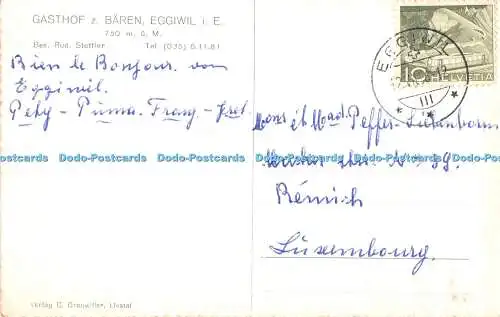 GASTHOF z. BÄREN, EGGIWIL i. E.
750 m. ü. M.
Bes. Rud. Stettler Tel (035) 6.11.81
Bien le Bonjour von
Eggiwil.
Pety - Puma - Frany -
EGGIWIL
10 HELVETIA
Mons et Mad. Peffer-
N° 39.
Rémich
Luxembourg.
Dodo-Postcards Dodo-Postcards Dodo-Postcards Dodo-Postcards Dodo-Postcards Dodo-Postcards
Verlag C. Liestal